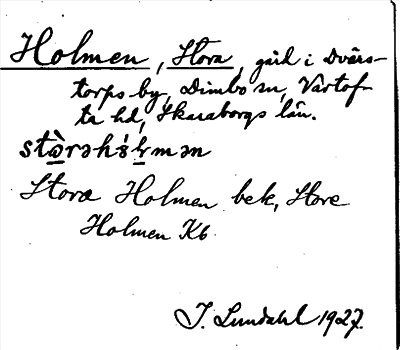 Holmen, Stora, gård i Dvärs-
torps by, Dimbo sn, Vartof-
ta hd, Skaraborgs län.
Stora Holmen bek, Stora
Holmen Kb
J. Lundahl 1927.